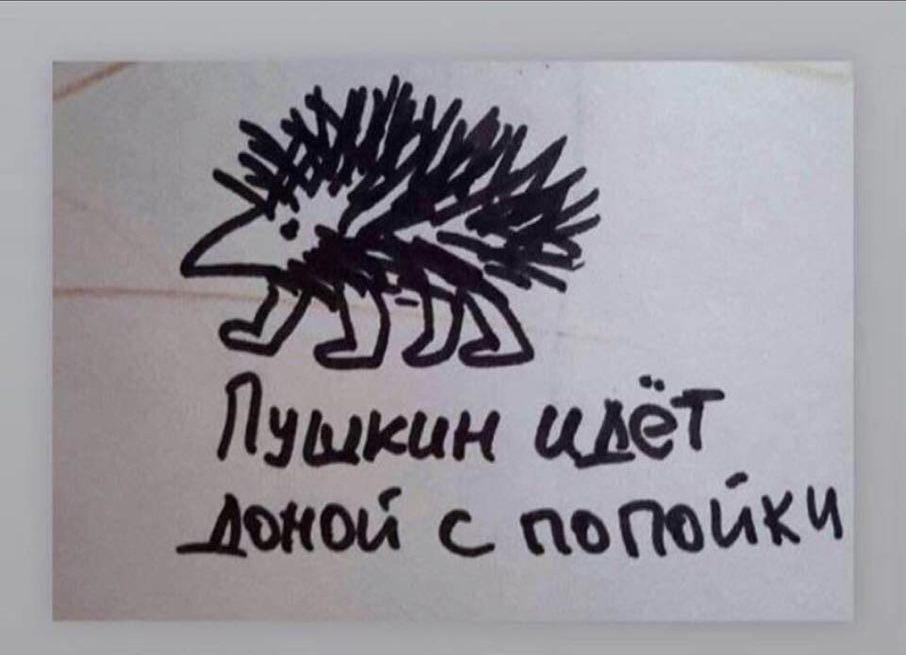 Пушкин идёт
доной с попойки